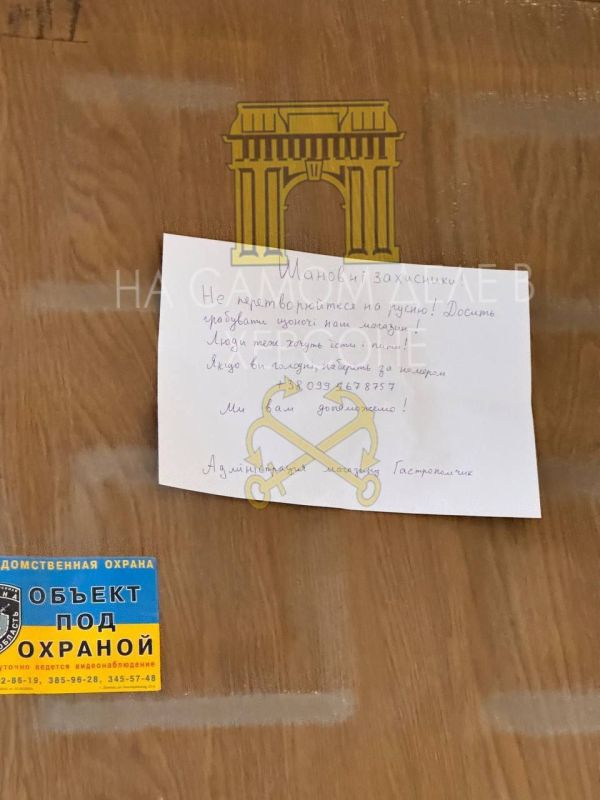 Шановні захисники
НА САМОМ ДЕЛЕ В
Не перетворюйтеся на русню! Досить
грабувати щоночі наш магазин!
ХЕРСОНЕ
Люди теж хочуть їсти і пити!
Якщо ви голодні, наберіть за номером
+38 099 4678757
Ми вам допоможемо!
Адміністрація магазину Гастрономчик
ДОМСТВЕННАЯ ОХРАНА
ОБЪЕКТ
ПОД
ОХРАНОЙ
ОБЛАСТЬ
уточно ведется видеонаблюдение
2-86-19, 385-96-28, 345-57-48